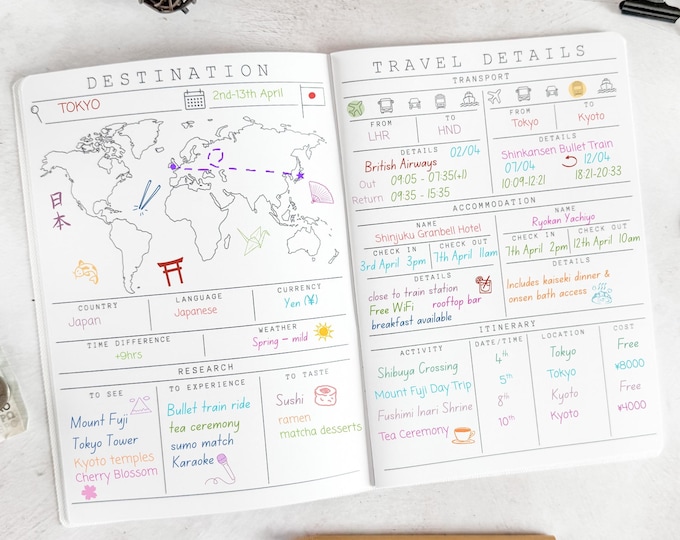 DESTINATION
TOKYO
2nd-13th April
日本
COUNTRY
Japan
LANGUAGE
Japanese
CURRENCY
Yen (¥)
TIME DIFFERENCE
+9hrs
WEATHER
Spring – mild
RESEARCH
TO SEE
Mount Fuji
Tokyo Tower
Kyoto temples
Cherry Blossom
TO EXPERIENCE
Bullet train ride
tea ceremony
sumo match
Karaoke
TO TASTE
Sushi
ramen
matcha desserts
TRAVEL DETAILS
TRANSPORT
FROM
LHR
TO
HND
DETAILS
British Airways 02/04
Out 09:05 - 07:35(+1)
Return 09:35 - 15:35
FROM
Tokyo
TO
Kyoto
DETAILS
Shinkansen Bullet Train
07/04 12/04
10:09-12:21 18:21-20:33
ACCOMMODATION
NAME
Shinjuku Granbell Hotel
CHECK IN
3rd April 3pm
CHECK OUT
7th April 11am
DETAILS
close to train station
Free WiFi rooftop bar
breakfast available
NAME
Ryokan Yachiyo
CHECK IN
7th April 2pm
CHECK OUT
12th April 10am
DETAILS
Includes kaiseki dinner &
onsen bath access
ITINERARY
ACTIVITY DATE/TIME LOCATION COST
Shibuya Crossing 4th Tokyo Free
Mount Fuji Day Trip 5th Tokyo ¥8000
Fushimi Inari Shrine 8th Kyoto Free
Tea Ceremony 10th Kyoto ¥4000